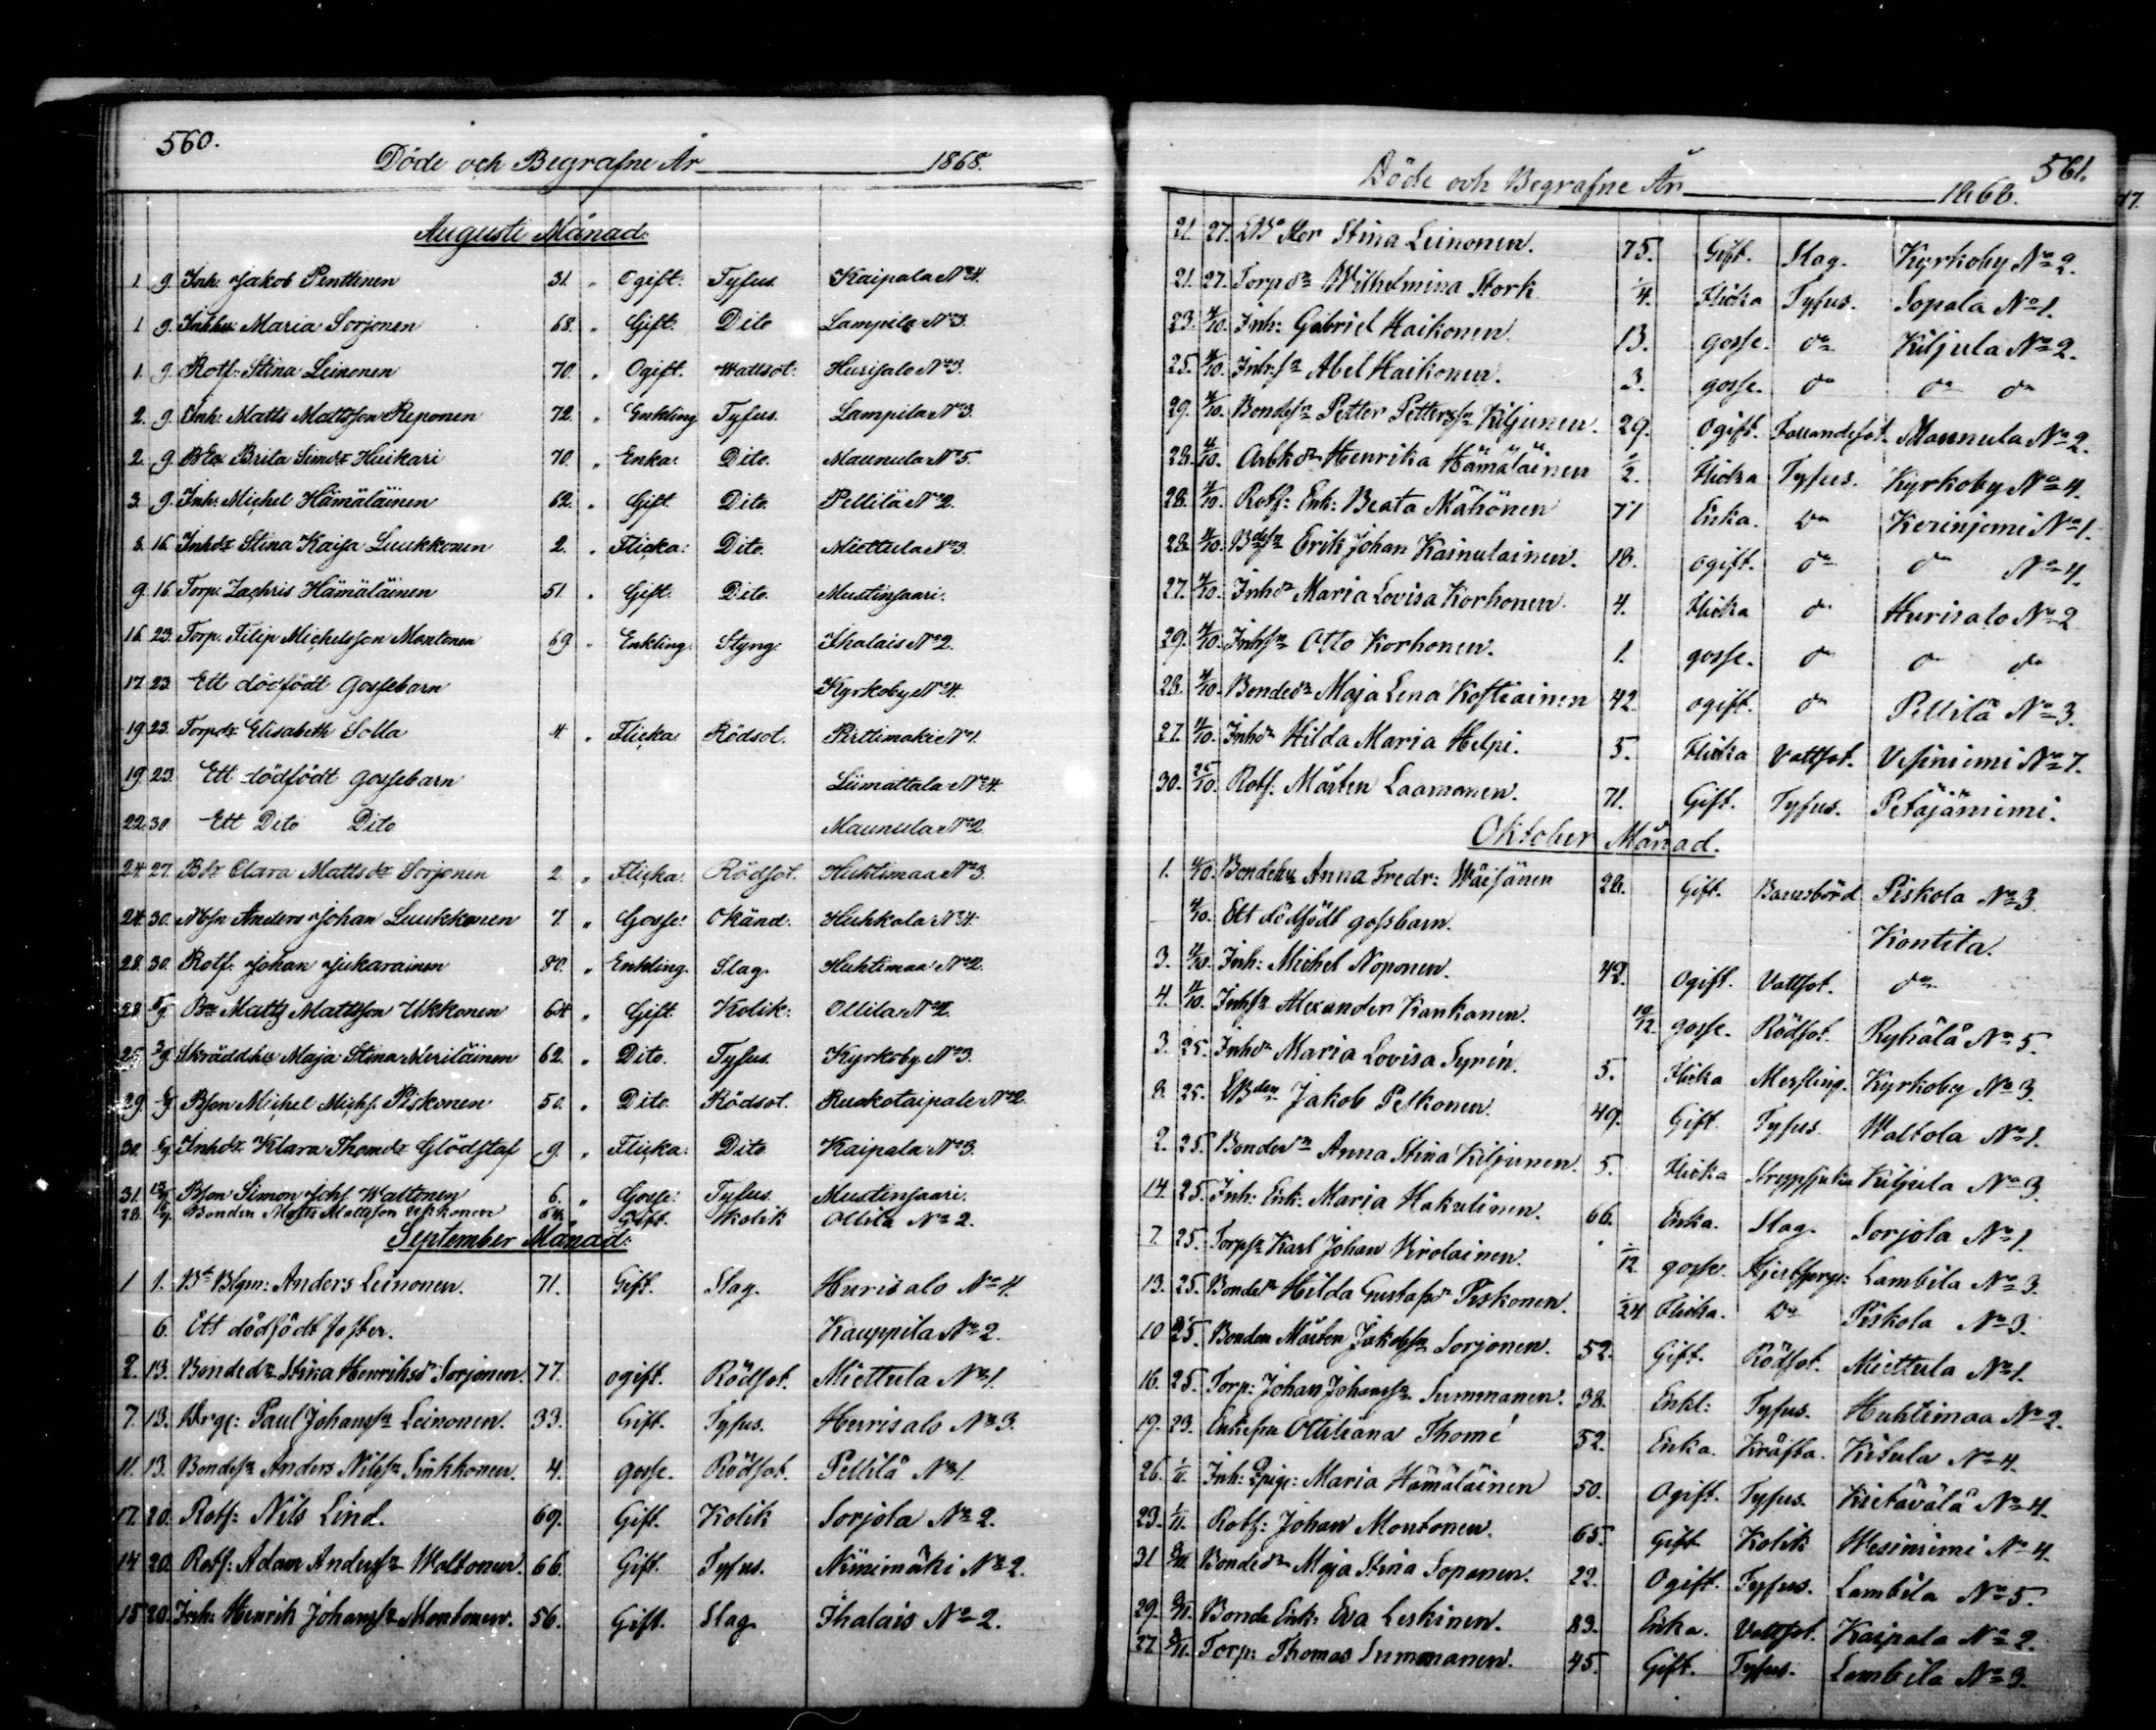 560.
Döde och Begrafne År 1868.
Augusti Månad.
1. 9. Inh. Jakob Penttinen 31. " Ogift. Tyfus. Kaipala No 4.
1 9. Inhhu Maria Sorjonen 68. " Gift. Dito Lampila No 3.
1. 9. Rotf: Stina Leinonen 70. " Ogift. Wattsot. Hurisalo No 3.
2. 9. Inh: Matts Mattsson Reponen 72. " Enkling Tyfus. Lampila No 3.
2. 9. Brita Simdr Huikari 70. " Enka. Dito. Maunula No 5.
3. 9. Inh: Michel Hämäläinen 62. " Gift. Dito. Pellilä No 2.
8. 16. Inhdr Stina Kaisa Luukkonen 2. " Flicka: Dito. Miettula No 3.
9. 16. Torp. Zachris Hämäläinen 51. " Gift. Dito. Mustinsaari.
16. 23. Torp. Filip Michelsson Montonen 69 " Enkling. Styng. Ihalais No 2.
17. 23. Ett dödfödt Gossebarn Kyrkoby No 4.
19. 23. Torpdr Elisabeth Solla 4 " Flicka: Rödsot. Pirttimäki No 1.
19. 23. Ett dödfödt gossebarn Liimattala No 4.
22. 30 Ett Dito Dito Maunula No 2.
24. 27. Bdr Clara Mattsdr Sorjonen 2. " Flicka: Rödsot. Huhtimaa No 3.
24. 30. Anders Johan Luukkonen 7. " Gosse: Okänd. Huhkala No 4.
28. 30. Rotf. Johan Jukarainen 80. " Enkling. Slag. Huhtimaa No 2.
28. 5/9. Matts Mattsson Ukkonen 64 " Gift. Kolik: Ollila No 2.
25. 3/9. Skräddhu Maja Stina Meriläinen 62. " Dito. Tyfus. Kyrkoby No 3.
29. Bson Michel Michs. Piskonen 50. " Dito. Rödsot. Ruokotaipale No 2.
30. Inhdr Klara Thomdr Glödstaf 9. " Flicka: Dito Kaipala No 3.
31. Bson Simon Johs. Waltonen 6. " Gosse: Tyfus. Mustinsaari.
28. Bonden Matts Mattsson Ukkonen 64. Gift. Kolik Ollila No 2.
September Månad:
1 1. Anders Leinonen. 71. Gift. Slag. Hurisalo No 4.
6. Ett dödfödt foster. Kauppila No 2.
2. 13. Bondedr Stina Henriksdr Sorjonen. 77. ogift. Rödsot. Miettula No 1.
7. 13. Paul Johanssn Leinonen. 33. Gift. Tyfus. Hurisalo No 3.
11. 13. Bondesn Anders Nilssn Sinkkonen. 4. gosse. Rödsot. Pellilä No 1.
17. 20. Rotf: Nils Lind. 69. Gift. Kolik Sorjola No 2.
14 20. Rotf: Adam Anderssn Waltonen. 66. Gift. Tyfus. Niinimäki No 2.
15 20. Inh: Henrik Johanssn Montonen. 56. Gift. Slag Ihalais No 2.
561.
Döde och Begrafne År 1868.
21. 27. Stina Leinonen. 75. Gift. Slag. Kyrkoby No 2.
21. 27. Torpdr Wilhelmina Stork 1/4. Flicka Tyfus. Sopala No 1.
23. 4/10. Inh: Gabriel Haikonen. 13. gosse. do Kiljula No 2.
25. 4/10. Inh:sn Abel Haikonen. 3. gosse. do do do
29. 4/10. Bondesn Petter Petterssn Kiljunen. 29. Ogift. Fallandesot. Maunula No 2.
28. 4/10. Arbkdr Henrika Hämäläinen 1/2. Flicka Tyfus. Kyrkoby No 4.
28. 4/10. Rotf: Enk: Beata Mähönen 71 Enka. do Kerinjemi No 1.
28. 4/10. Bdesn Erik Johan Kainulainen. 18. ogift. do do No 4.
27. 4/10. Inhdr Maria Lovisa Korhonen. 4. Flicka do Hurisalo No 2
29. 4/10. Inhsn Otto Korhonen. 1. gosse. do do do
28. 4/10. Bondedr Maja Lena Kostiainen 42. ogift. do Pellilä No 3.
27. 4/10. Inhdr Hilda Maria Helpi. 5. Flicka Vattsot. Vesiniemi No 7.
30. 25/10. Rotf. Mårten Laamanen. 71. Gift. Tyfus. Petäjäniemi.
Oktober Månad.
1. 4/10. Bondehu Anna Fredr: Wäisänen 28. Gift. Barnsbörd Piskola No 3.
4/10. Ett dödfödt gossbarn. Kontila.
3. Inh: Michel Noponen. 42. Ogift. Vattsot. do
4. Inhsn Alexander Kankanen. 10/12. gosse. Rödsot. Ryhälä No 5.
3. 25. Inhdr Maria Lovisa Syrén. 5. Flicka Messling. Kyrkoby No 3.
8. 25. Jakob Pelkonen. 49. Gift. Tyfus. Waltola No 1.
2. 25. Bondedr Anna Stina Kiljunen. 5. Flicka Strypsjuka Kiljula No 3.
14. 25. Inh: Enk. Maria Hakulinen. 66. Enka. Slag. Sorjola No 1.
7. 25. Torpsn Karl Johan Kirolainen. 1/12 gosse. Lambila No 3.
13. 25. Bondedr Hilda Gustafsdr Piskonen. 1/24 Flicka. do Piskola No 3.
10 25. Bonden Mårten Jakobssn Sorjonen. 52. Gift. Rödsot. Miettula No 1.
16. 25. Torp: Johan Johanssn Summanen. 38. Enkl: Tyfus. Huhtimaa No 2.
19. 23. Enkefru Ottiliana Thomé 52. Enka. Kräfta. Kitula No 4.
26. 1/11. Inh: Maria Hämäläinen 50. Ogift. Tyfus. Kietävälä No 4.
23. 1/11. Rotf: Johan Montonen. 65. Gift Kolik Wesiniemi No 4.
31 8/11. Bondedr Maja Stina Soponen. 22. Ogift. Tyfus. Lambila No 5.
29. 8/11. Bonde Enk: Eva Leskinen. 83. Enka. Vattsot. Kaipala No 2.
27. 8/11. Torp: Thomas Summanen. 45. Gift. Tyfus. Lambila No 3.